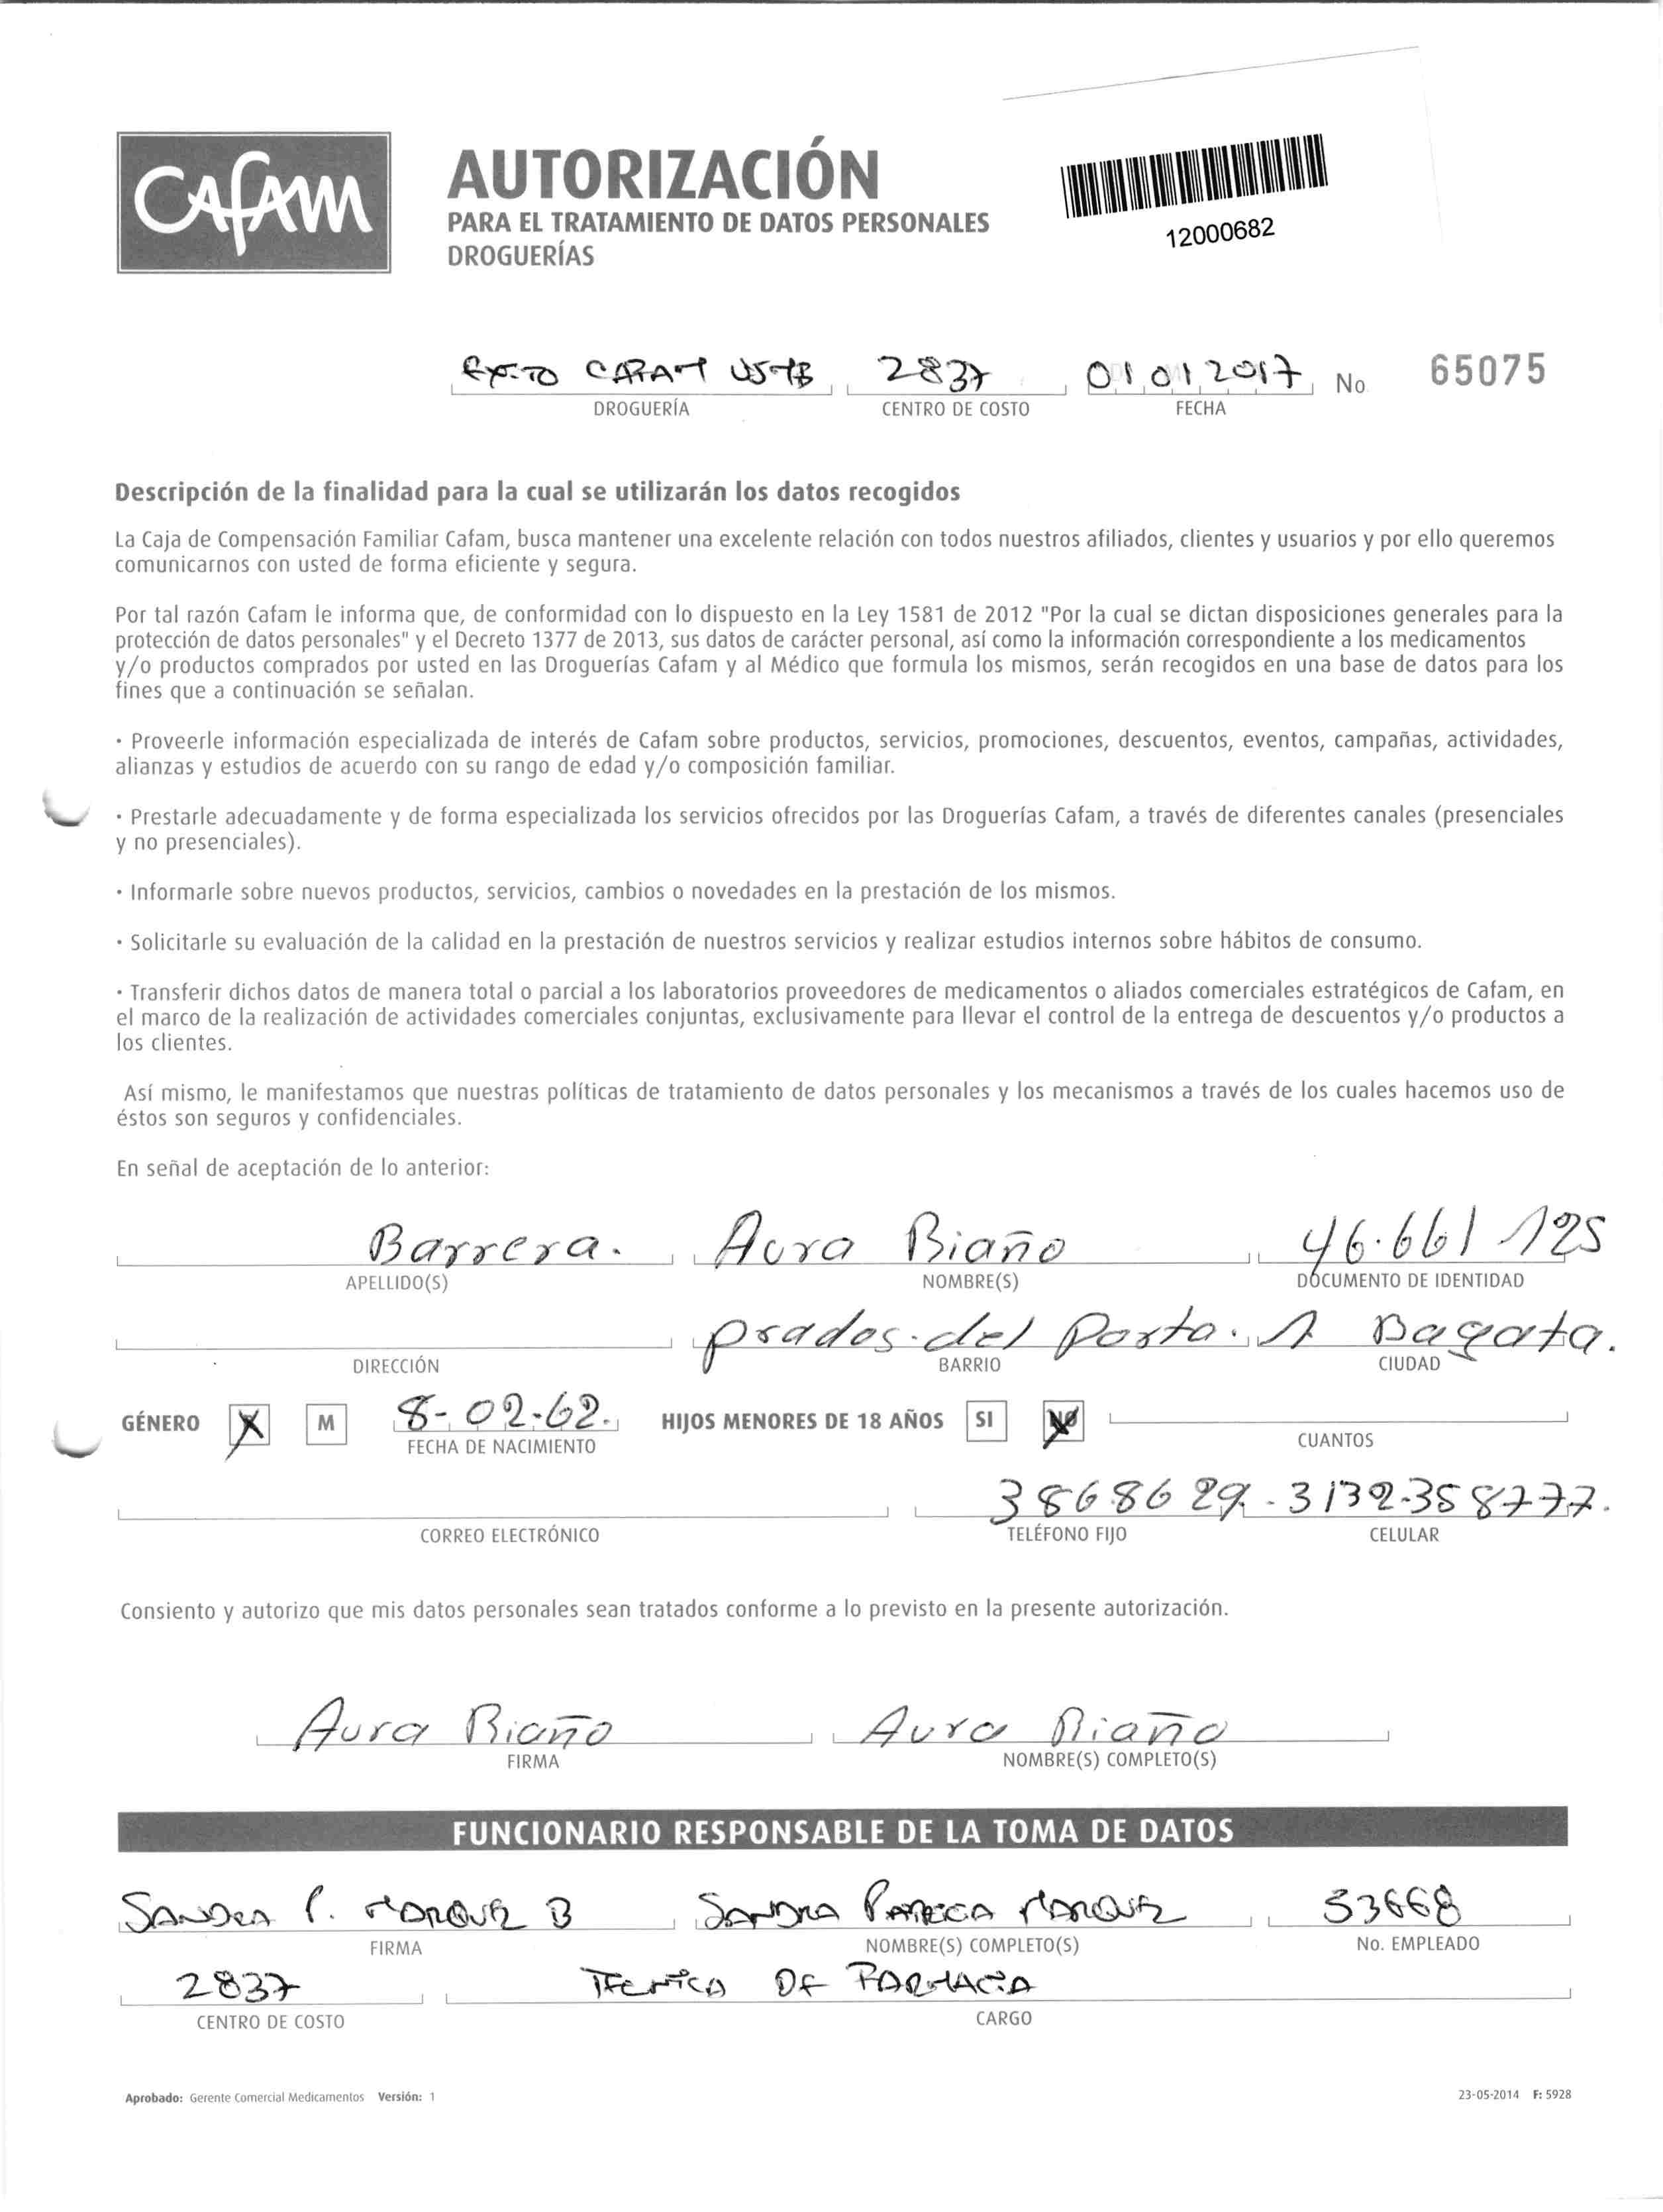 Cafam
AUTORIZACIÓN
PARA EL TRATAMIENTO DE DATOS PERSONALES
DROGUERÍAS
12000682
CAFAM 2837 01 01 2017 No 65075
DROGUERÍA CENTRO DE COSTO FECHA
Descripción de la finalidad para la cual se utilizarán los datos recogidos
La Caja de Compensación Familiar Cafam, busca mantener una excelente relación con todos nuestros afiliados, clientes y usuarios y por ello queremos
comunicarnos con usted de forma eficiente y segura.
Por tal razón Cafam le informa que, de conformidad con lo dispuesto en la Ley 1581 de 2012 "Por la cual se dictan disposiciones generales para la
protección de datos personales" y el Decreto 1377 de 2013, sus datos de carácter personal, así como la información correspondiente a los medicamentos
y/o productos comprados por usted en las Droguerías Cafam y al Médico que formula los mismos, serán recogidos en una base de datos para los
fines que a continuación se señalan.
· Proveerle información especializada de interés de Cafam sobre productos, servicios, promociones, descuentos, eventos, campañas, actividades,
alianzas y estudios de acuerdo con su rango de edad y/o composición familiar.
· Prestarle adecuadamente y de forma especializada los servicios ofrecidos por las Droguerías Cafam, a través de diferentes canales (presenciales
y no presenciales).
· Informarle sobre nuevos productos, servicios, cambios o novedades en la prestación de los mismos.
· Solicitarle su evaluación de la calidad en la prestación de nuestros servicios y realizar estudios internos sobre hábitos de consumo.
· Transferir dichos datos de manera total o parcial a los laboratorios proveedores de medicamentos o aliados comerciales estratégicos de Cafam, en
el marco de la realización de actividades comerciales conjuntas, exclusivamente para llevar el control de la entrega de descuentos y/o productos a
los clientes.
Así mismo, le manifestamos que nuestras políticas de tratamiento de datos personales y los mecanismos a través de los cuales hacemos uso de
éstos son seguros y confidenciales.
En señal de aceptación de lo anterior:
Barrera. Aura Biaño 46.661 125
APELLIDO(S) NOMBRE(S) DOCUMENTO DE IDENTIDAD
prados.del Porta.1 Bagata.
DIRECCIÓN BARRIO CIUDAD
GÉNERO M 8-02-62. HIJOS MENORES DE 18 AÑOS SI NO
FECHA DE NACIMIENTO CUANTOS
3868629.-3132358777.
CORREO ELECTRÓNICO TELÉFONO FIJO CELULAR
Consiento y autorizo que mis datos personales sean tratados conforme a lo previsto en la presente autorización.
Aura Riaño Aura Riaño
FIRMA NOMBRE(S) COMPLETO(S)
FUNCIONARIO RESPONSABLE DE LA TOMA DE DATOS
SANDRA P. MARQUEZ B SANDRA PATRICIA MARQUEZ 53668
FIRMA NOMBRE(S) COMPLETO(S) No. EMPLEADO
2837 TECNICA DE FARMACIA
CENTRO DE COSTO CARGO
Aprobado: Gerente Comercial Medicamentos Versión: 1 23-05-2014 F: 5928